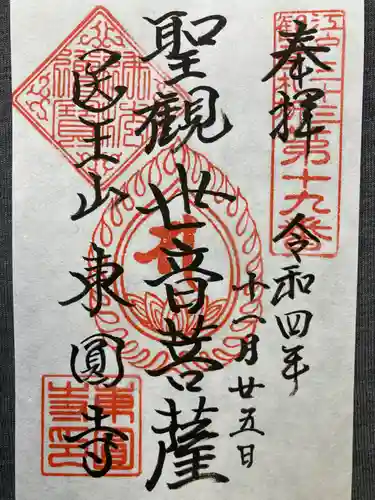 奉拝
令和四年
十一月廿五日
聖観世音菩薩
医王山 東圓寺
第十九番
東圓寺印